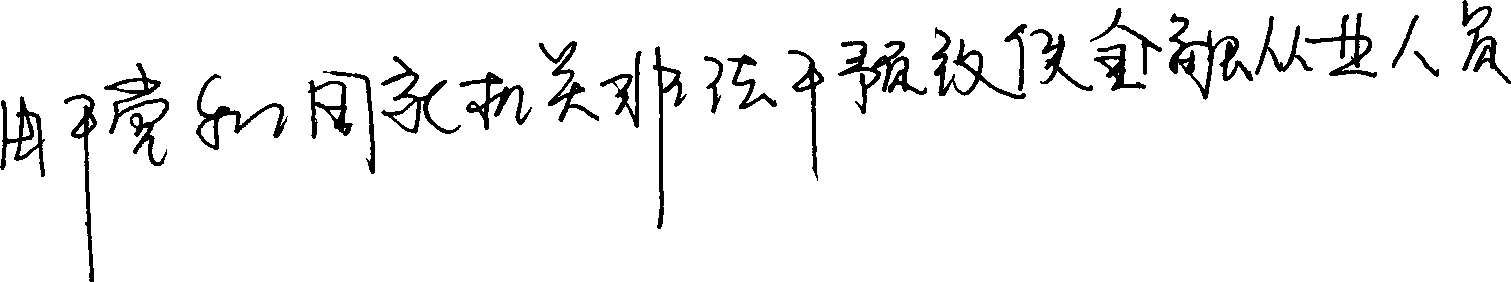 由于党和国家机关非法干预致使金融从业人员